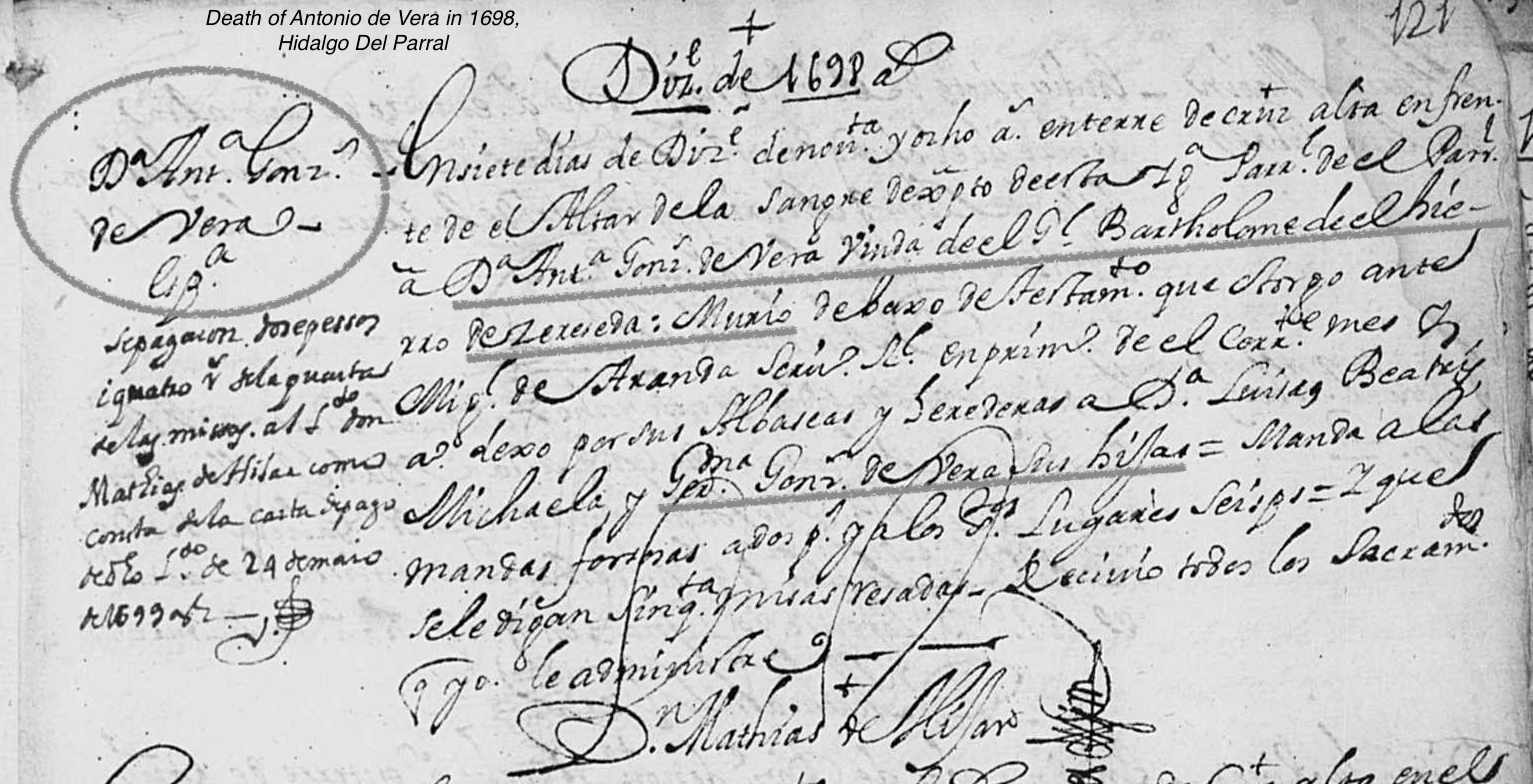 Death of Antonio de Vera in 1698,
Hidalgo Del Parral
121
Dize. de 1698 as
Da Anta. Gonz.
de Vera
Espa.
se pagaron dose pessos
i quatro rs de la quarta
de las misas al Ldo don
Mathias de Hisar como
consta de la carta de pago
de dho Ldo. de 24 de maio
de 1699 as
En siete dias de Dize. de novta. y ocho as. enterre de cruz alta en fren-
te de el Altar de la Sangre de Xpto de esta Yga Parrl. de el Parrl.
a Da Anta. Gonz. de Vera Viuda de el Gl. Bartholome de el hie-
rro de Zereseda: Murio debaxo de Testamto. que otorgo ante
Migl. de Aranda Scriv. Rl. en prim. de el Corrte mes y
ao. dexo por sus Albaseas y herederas a Da. Luisa, Beatris,
Michaela, y Gerdma Gonz. de Vera sus hijas = Manda a las
mandas forsosas a dos ps. y a los Stos Lugares Seis ps = Y que
se le digan Sinqta. misas resadas - Recivio todos los Sacramtos.
q yo. le administre
Dn. Mathias de Hisar